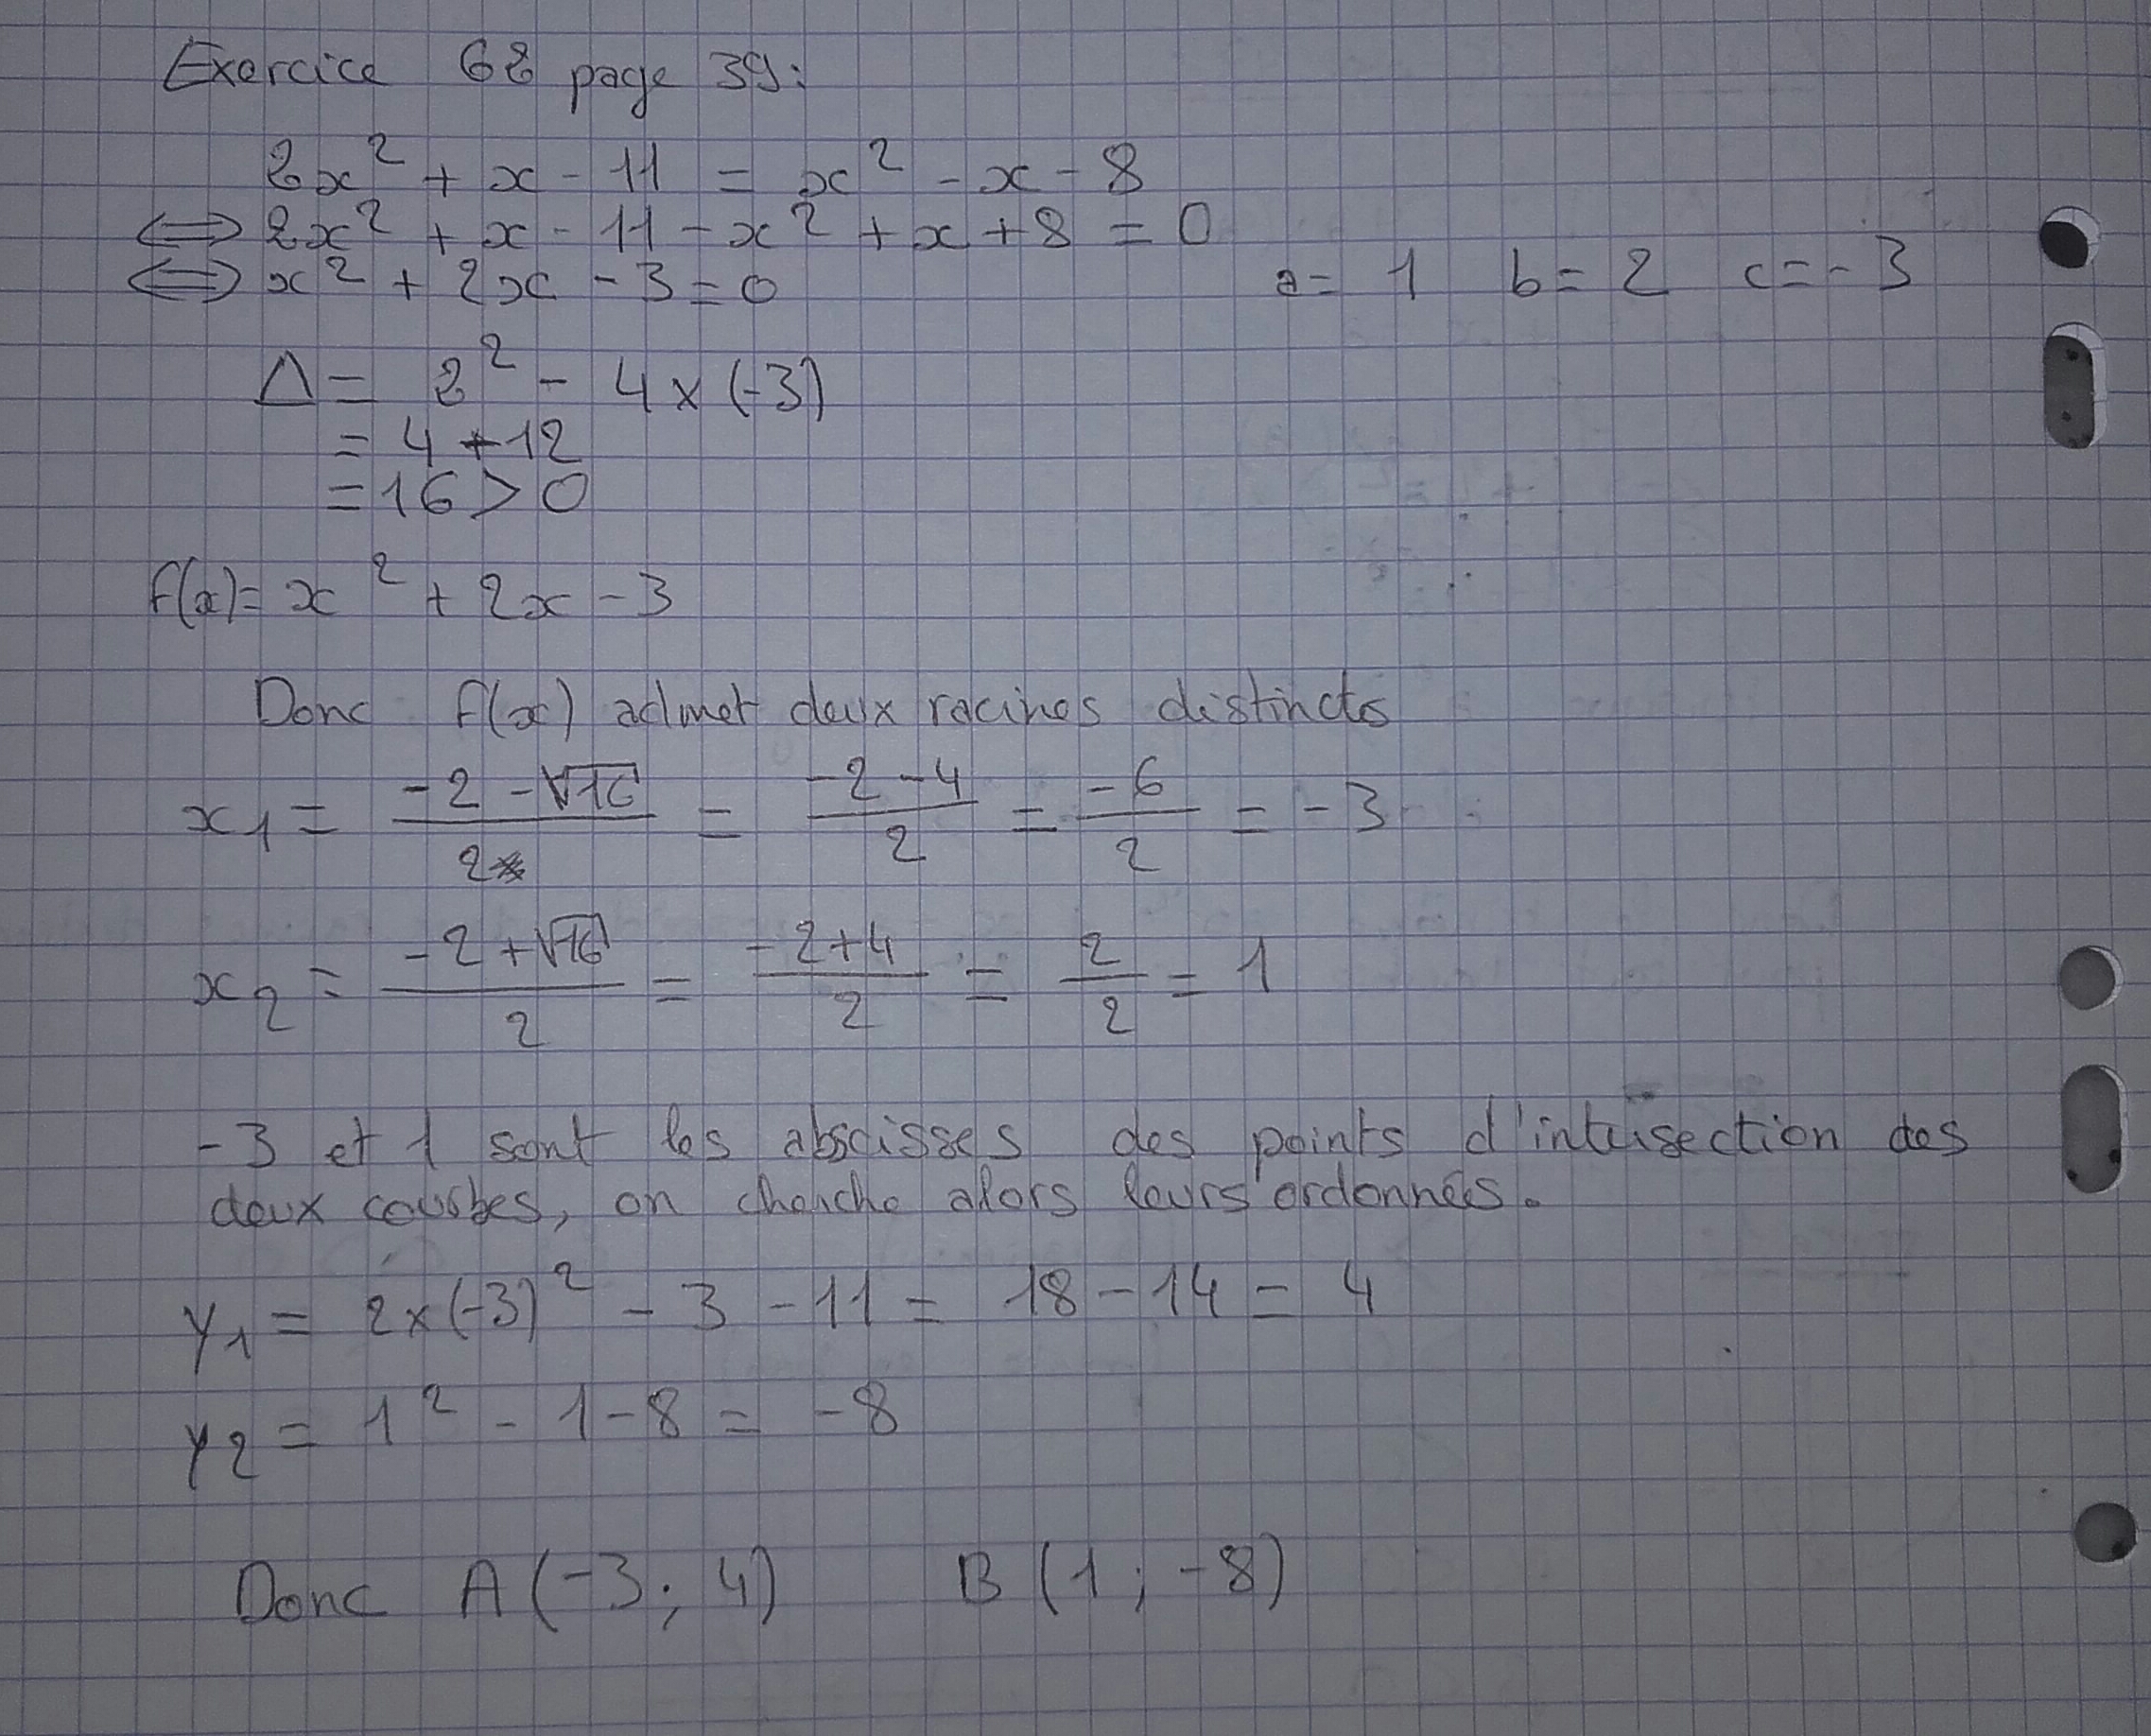 Exercice 68 page 39:
2x² + x - 11 = x² - x - 8
⟺ 2x² + x - 11 - x² + x + 8 = 0
⟺ x² + 2x - 3 = 0 a = 1 b = 2 c = -3
Δ = 2² - 4 × (-3)
= 4 + 12
= 16 > 0
f(x) = x² + 2x - 3
Donc f(x) admet deux racines distincts
x₁ = (-2 - √16)/2 = (-2 - 4)/2 = -6/2 = -3
x₂ = (-2 + √16)/2 = (-2 + 4)/2 = 2/2 = 1
-3 et 1 sont les abscisses des points d'intersection des
deux courbes, on cherche alors leurs ordonnées.
y₁ = 2 × (-3)² - 3 - 11 = 18 - 14 = 4
y₂ = 1² - 1 - 8 = -8
Donc A (-3 ; 4) B (1 ; -8)